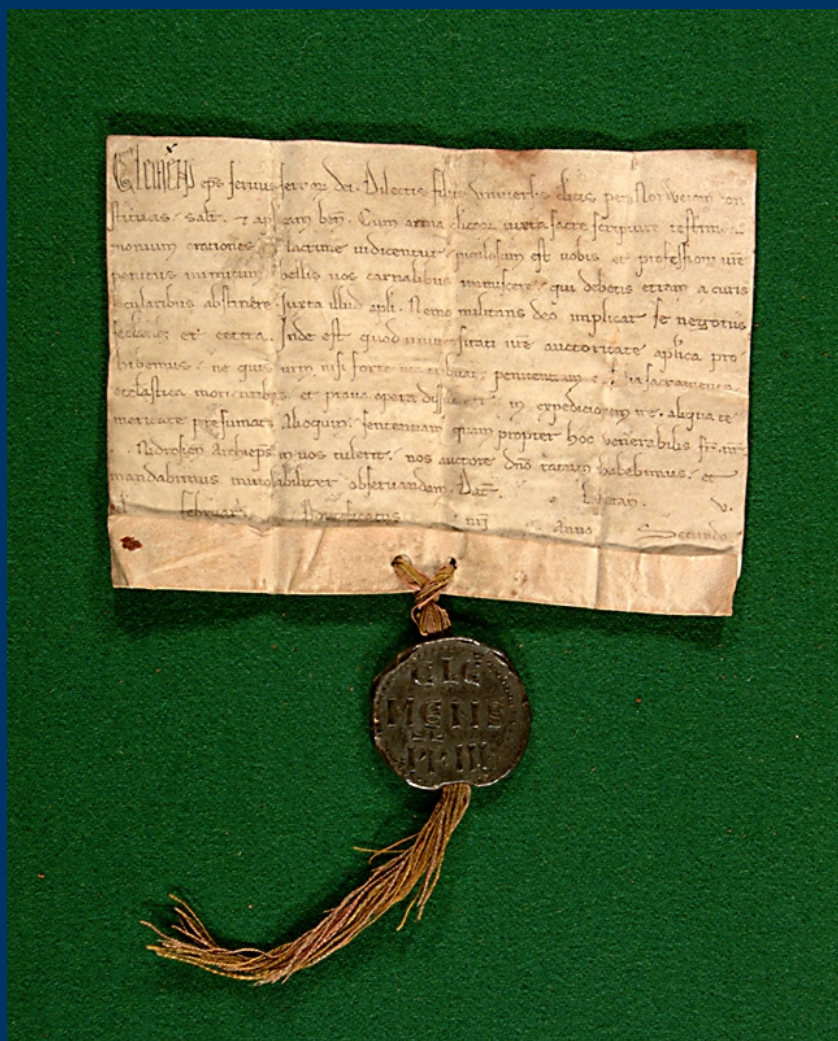 Clemens eps seruus seruoz dei. Dilectis filiis uniuersis clicis per Norweiam con
stitutis. salt. et aplicam ben. Cum arma clicoz iuxta sacre scripture testimo
monium orationes et lacrime iudicentur. piculosum est uobis et professioni ure
penitus inimicum. bellis uos carnalibus immiscere. qui debetis etiam a curis
secularibus abstinere. Iuxta illud apli. Nemo militans deo implicat se negotiis
seclarib; et cetera. Inde est quod uniuersitati ure auctoritate aplica pro
hibemus. ne quis urm. nisi forte ut tribuat penitentiam sacramenta
ecclastica morientibus et praua opera in expeditionem ire. aliqua te
meritate presumat. Alioquin. sententiam quam propter hoc uenerabilis fr. nr.
. Nidrosien Archieps in uos tulerit. nos auctore dno ratam habebimus. et
mandabimus inuiolabiliter obseruandam. Dat. Lateran. V.
februar. Pontificatus nri Anno Secundo.
CLE
MENS
PP·III